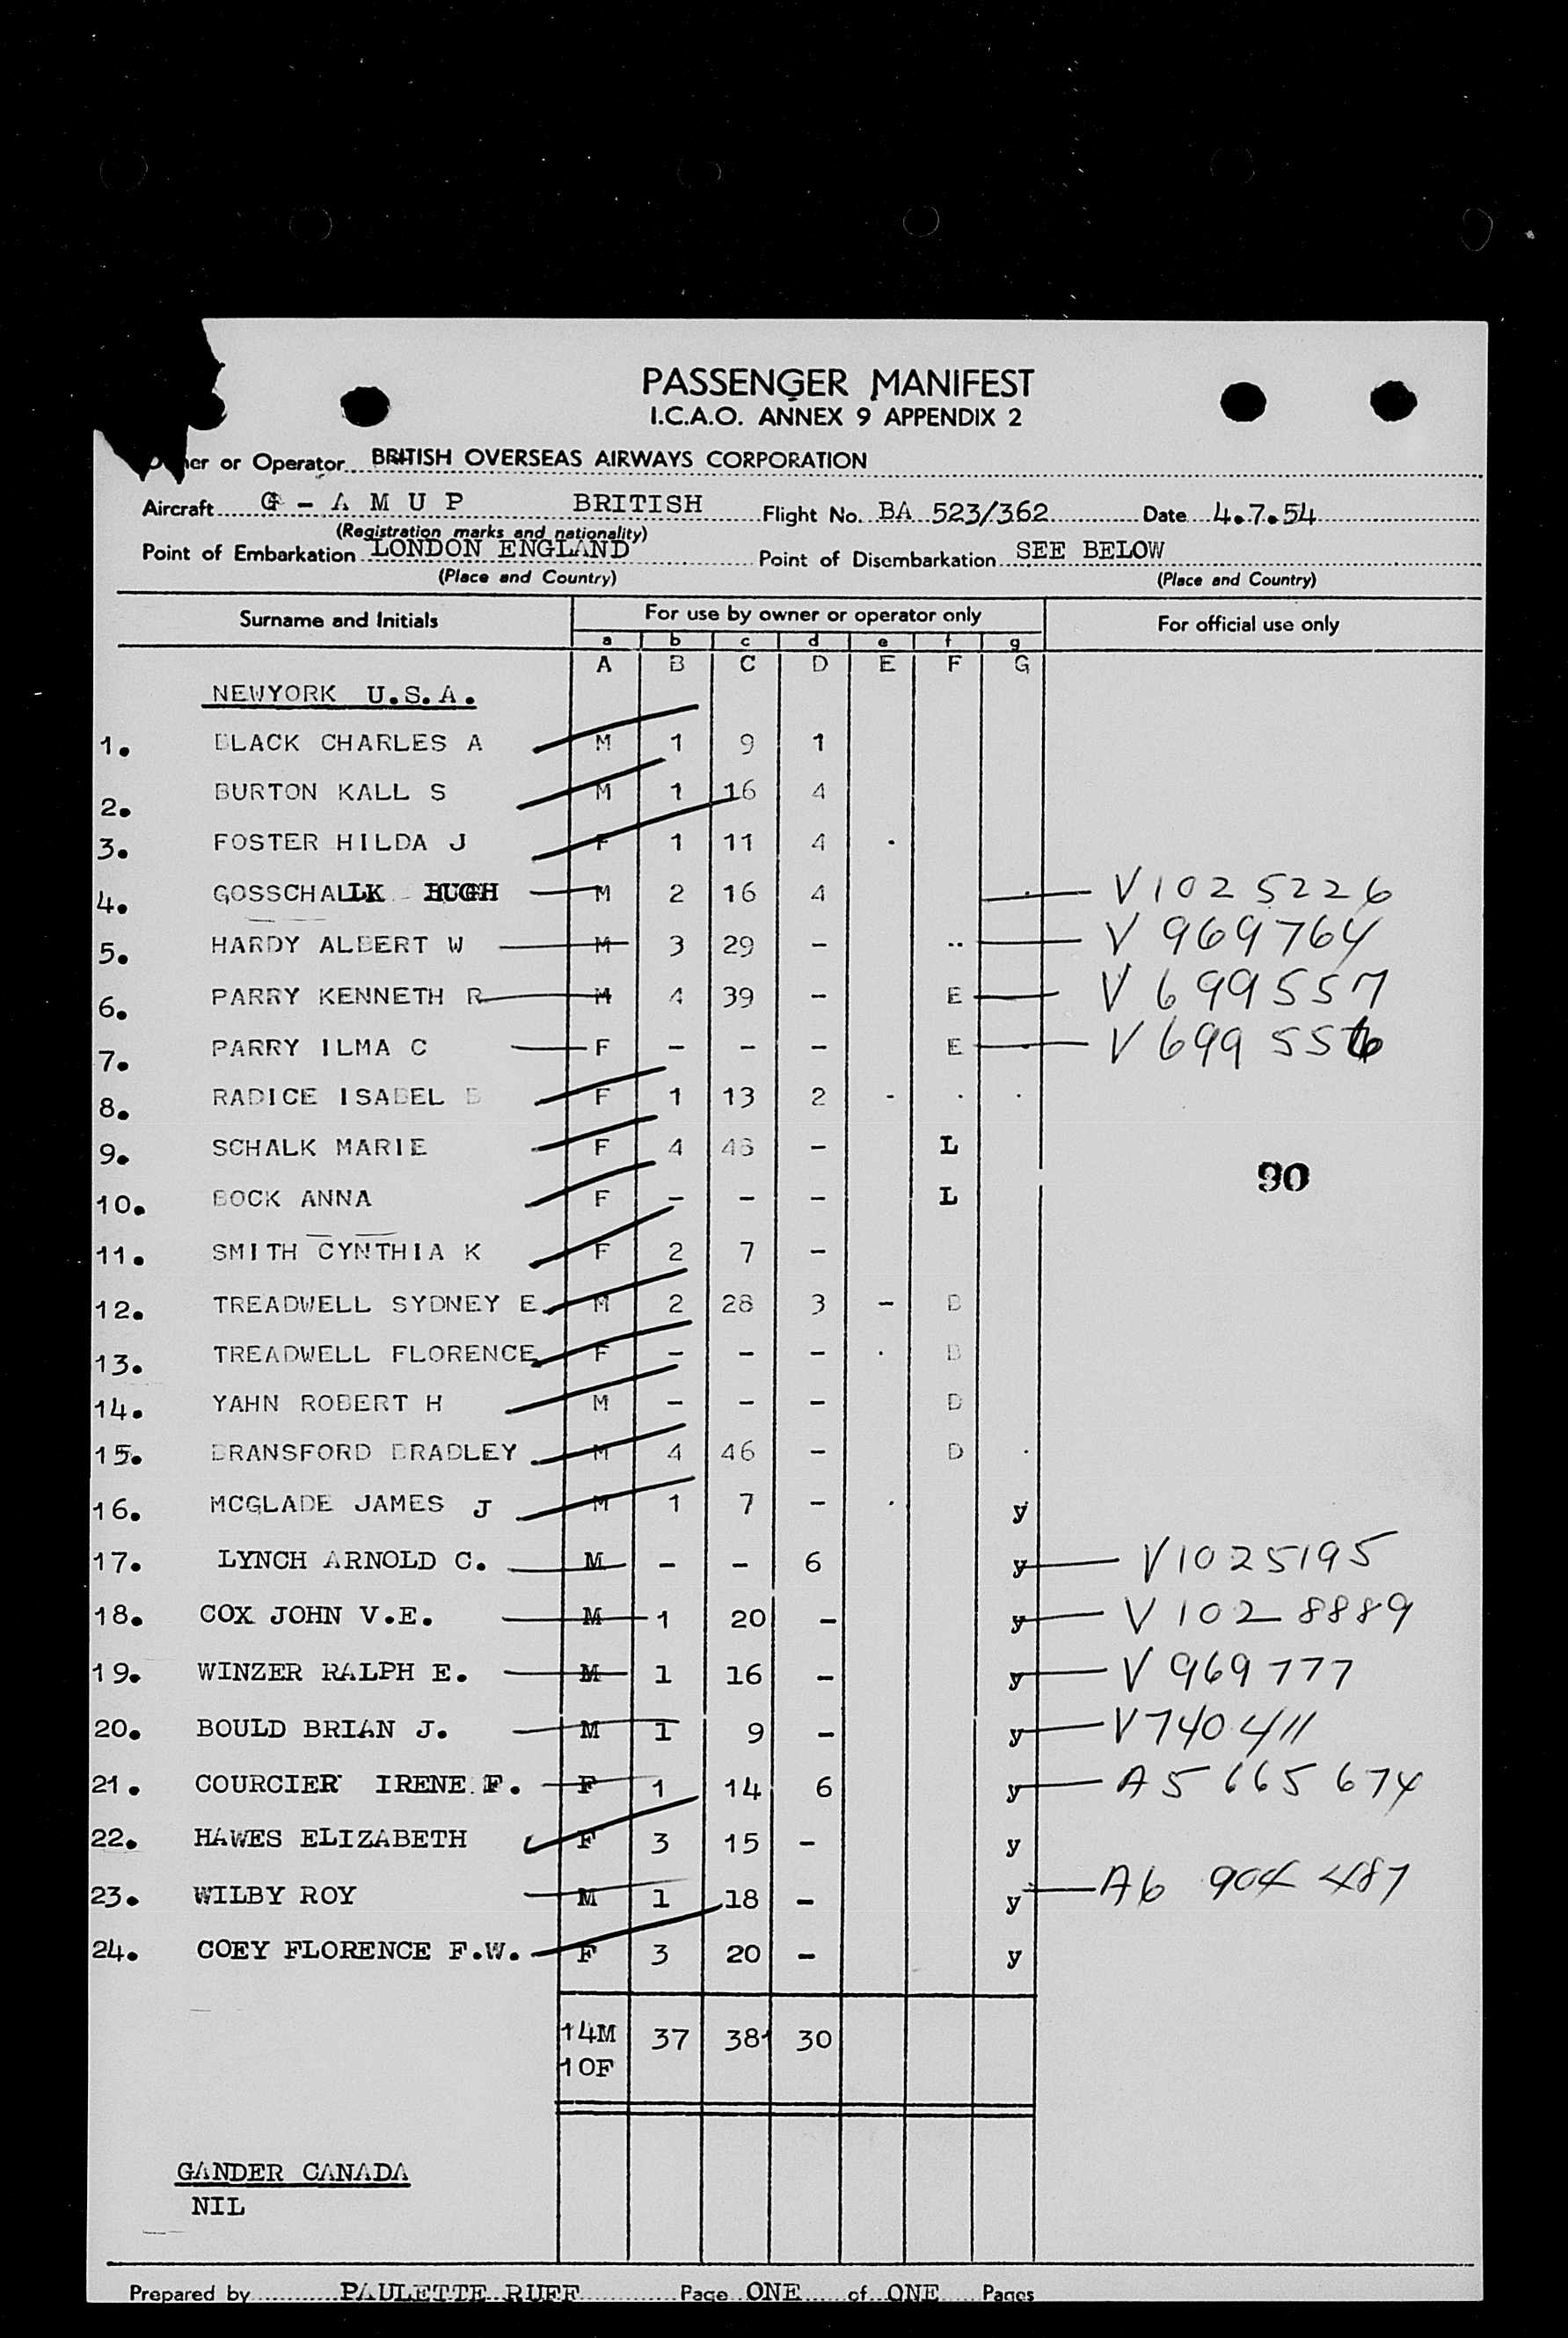 PASSENGER MANIFEST
I.C.A.O. ANNEX 9 APPENDIX 2
Owner or Operator BRITISH OVERSEAS AIRWAYS CORPORATION
Aircraft G - A M U P BRITISH Flight No. BA 523/362 Date 4.7.54
(Registration marks and nationality)
Point of Embarkation LONDON ENGLAND Point of Disembarkation SEE BELOW
(Place and Country) (Place and Country)
Surname and Initials For use by owner or operator only For official use only
a b c d e f g
A B C D E F G
NEWYORK U.S.A.
1. BLACK CHARLES A M 1 9 1
2. BURTON KALL S M 1 16 4
3. FOSTER HILDA J F 1 11 4
4. GOSSCHALK HUGH M 2 16 4 V1025226
5. HARDY ALBERT W M 3 29 - V 969764
6. PARRY KENNETH R M 4 39 - E V 699557
7. PARRY ILMA C F - - - E V 699556
8. RADICE ISABEL B F 1 13 2
9. SCHALK MARIE F 4 48 - L
90
10. BOCK ANNA F - - - L
11. SMITH CYNTHIA K F 2 7 -
12. TREADWELL SYDNEY E M 2 28 3 - D
13. TREADWELL FLORENCE F - - - D
14. YAHN ROBERT H M - - - D
15. BRANSFORD BRADLEY M 4 46 - D
16. MCGLADE JAMES J M 1 7 - y
17. LYNCH ARNOLD C. M - - 6 y V1025195
18. COX JOHN V.E. M 1 20 - y V 1028889
19. WINZER RALPH E. M 1 16 - y V 969777
20. BOULD BRIAN J. M 1 9 - y V740411
21. COURCIER IRENE F. F 1 14 6 y A5665674
22. HAWES ELIZABETH F 3 15 - y
23. WILBY ROY M 1 18 - y A6 904 487
24. COEY FLORENCE F.W. F 3 20 - y
14M 37 381 30
10F
GANDER CANADA
NIL
Prepared by PAULETTE RUFF Page ONE of ONE Pages